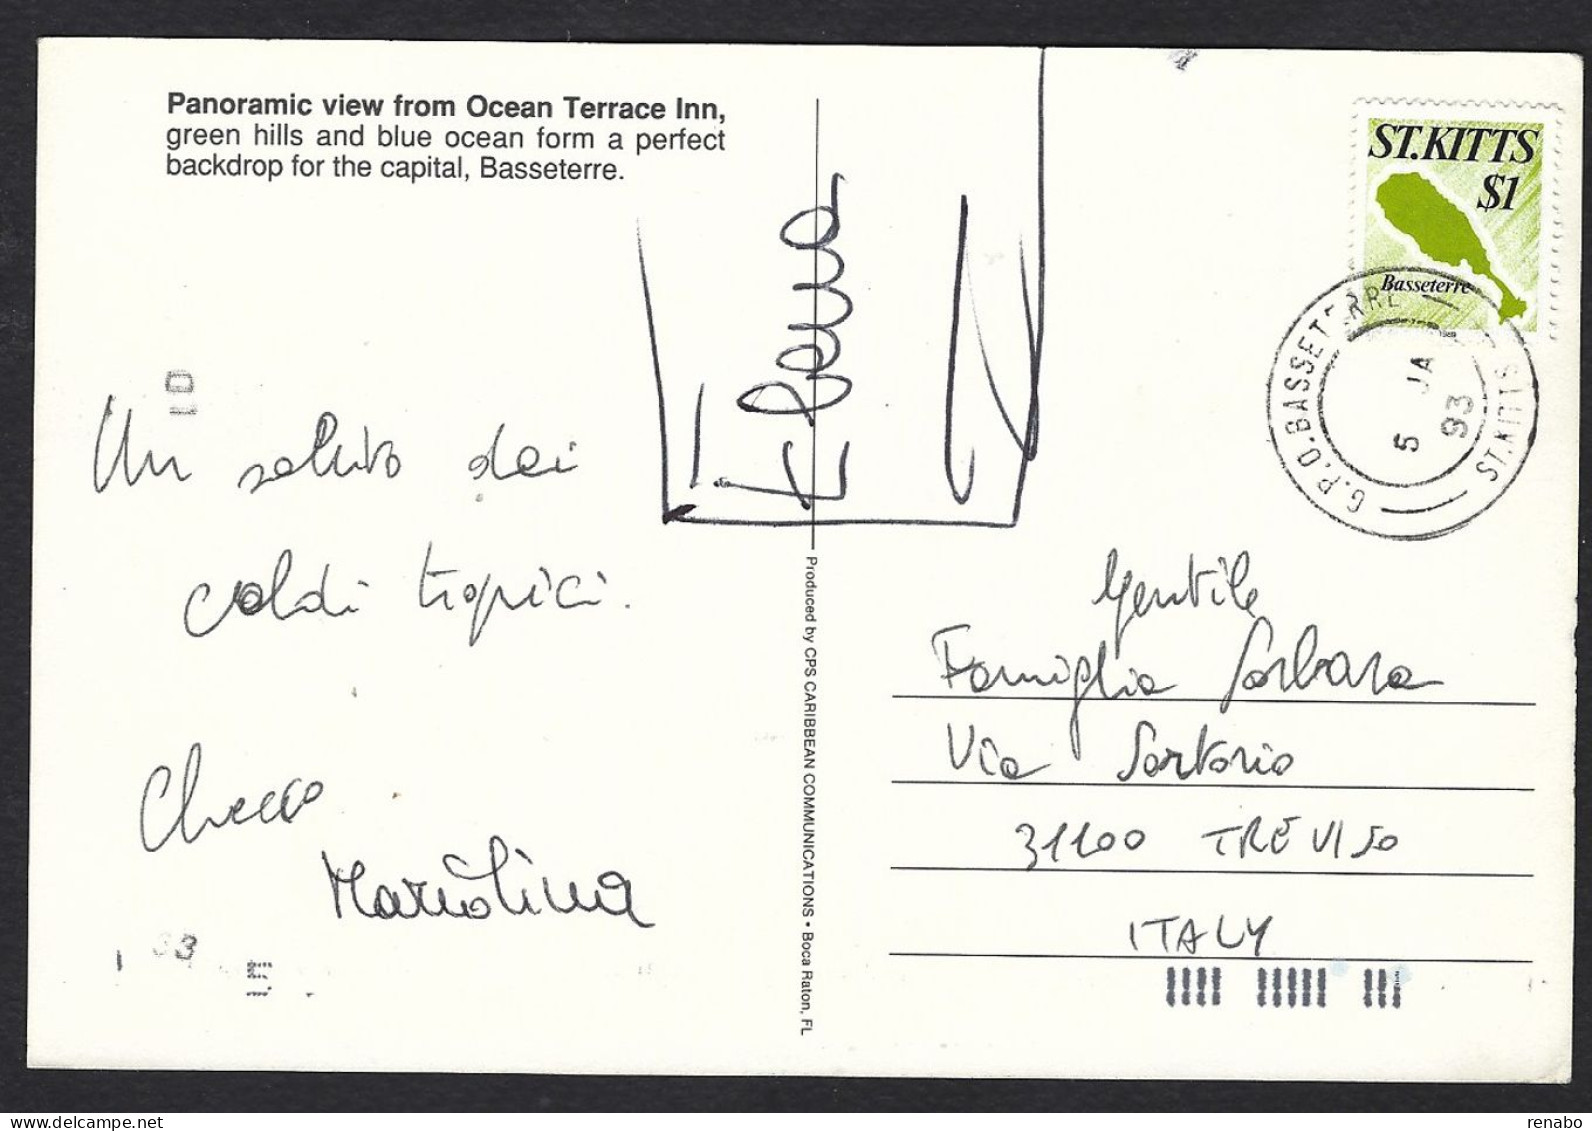 Panoramic view from Ocean Terrace Inn,
green hills and blue ocean form a perfect
backdrop for the capital, Basseterre.
ST.KITTS
$1
Basseterre
1989
G.P.O. BASSETERRE
ST. KITTS
5 JA
93
Un saluto dai
caldi tropici.
Checco
Mariolina
Produced by CPS CARIBBEAN COMMUNICATIONS • Boca Raton, FL
Gentile
Famiglia Sorbara
Via Sartorio
31100 TREVISO
ITALY
renabo